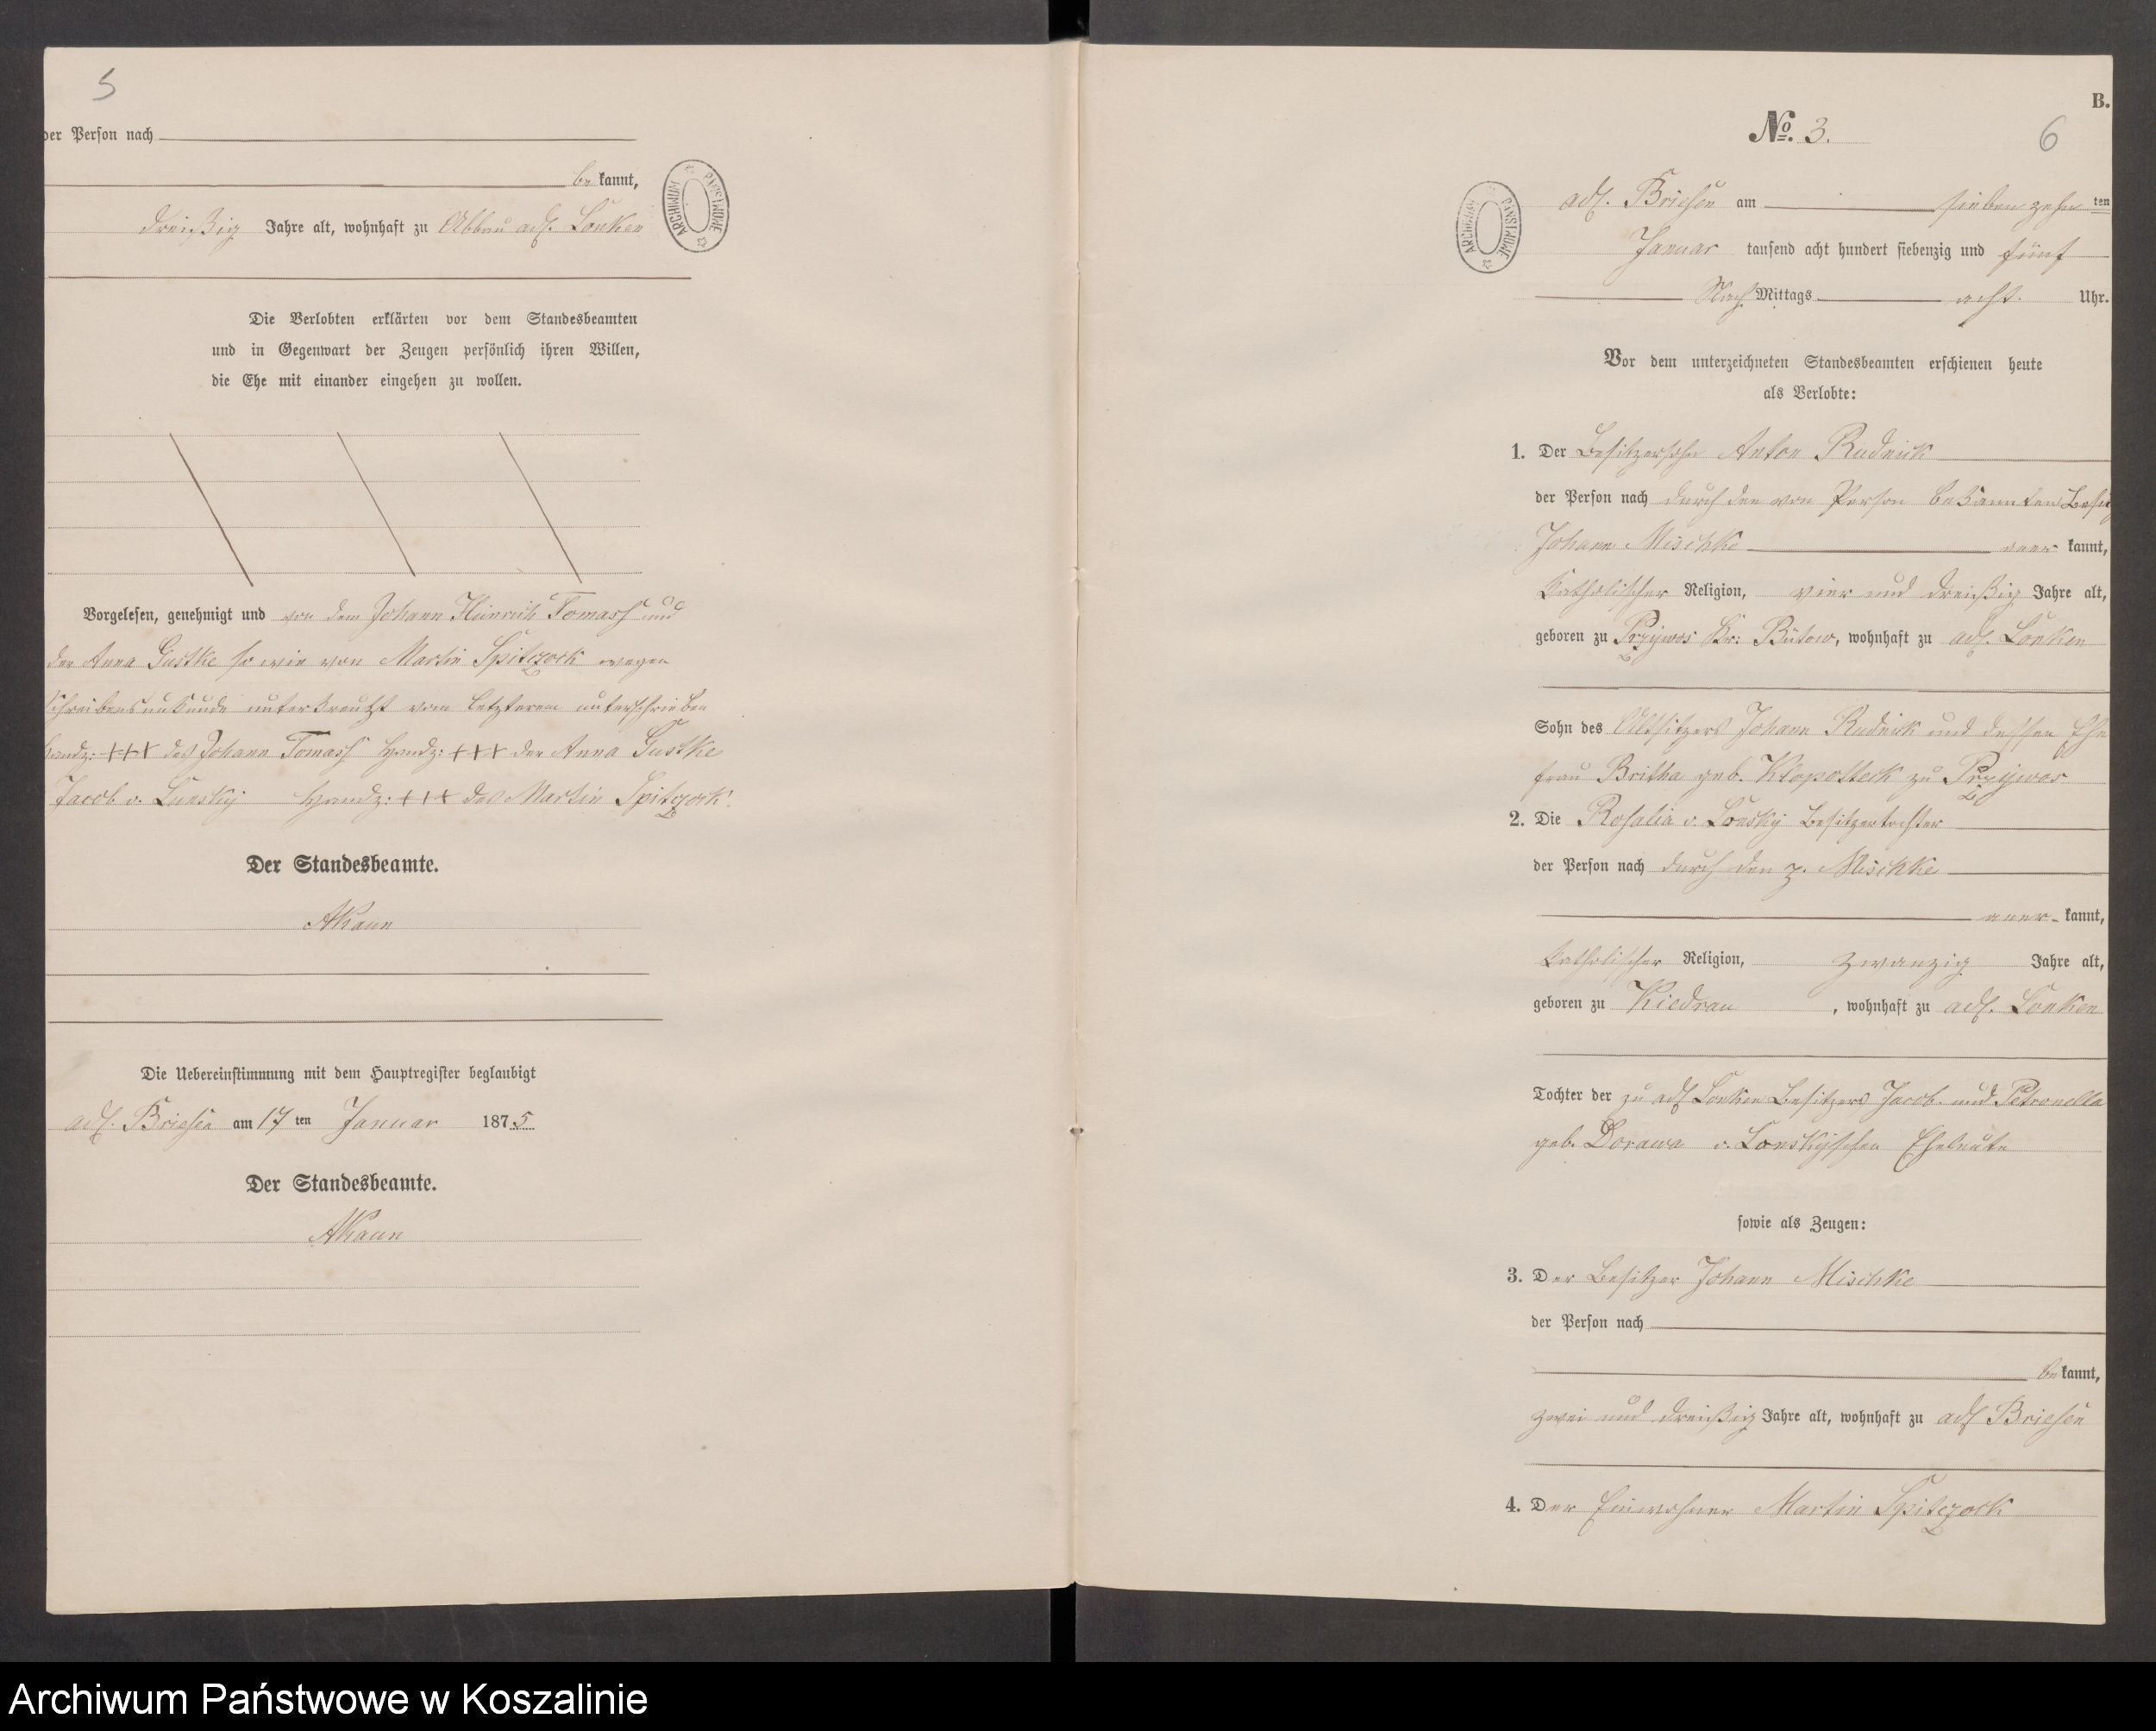 5
der Person nach
be kannt,
dreißig Jahre alt, wohnhaft zu Abbau adl. Lonken
ARCHIWUM PAŃSTWOWE
Die Verlobten erklärten vor dem Standesbeamten
und in Gegenwart der Zeugen persönlich ihren Willen,
die Ehe mit einander eingehen zu wollen.
Vorgelesen, genehmigt und von dem Johann Heinrich Tomasch und
der Anna Gustke so wie von Martin Spitczock wegen
Schreibensunkunde unterkreutzt vom letzterem unterschrieben
Handz: +++ des Johann Tomasch Handz: +++ der Anna Gustke
Jacob v. Handz: +++ des Martin Spitczock.
Der Standesbeamte.
AKaun
Die Uebereinstimmung mit dem Hauptregister beglaubigt
adl. Briesen am 17 ten Januar 1875
Der Standesbeamte.
AKaun
B.
No. 3.
6
ARCHIWUM PAŃSTWOWE
adl. Briesen am siebenzehn ten
Januar tausend acht hundert siebenzig und fünf
Nach Mittags acht Uhr.
Vor dem unterzeichneten Standesbeamten erschienen heute
als Verlobte:
1. Der Besitzersohn Anton Rudnick
der Person nach durch den von Person bekannten
Johann Mischke aner kannt,
Katholischer Religion, vier und dreißig Jahre alt,
geboren zu Przywos Kr: Bütow, wohnhaft zu adl. Lonken
Sohn des Altsitzers Johann Rudnick und dessen Ehe
frau Britha geb. Klopotteck zu Przywos
2. Die Rosalia v. Lonsky Besitzertochter
der Person nach durch den p. Mischke
aner- kannt,
Katholischer Religion, zwanzig Jahre alt,
geboren zu Kiedrau, wohnhaft zu adl. Lonken
Tochter der zu adl Lonken Besitzers Jacob und Petronella
geb. Dorawa v. Lonskyschen Eheleute
sowie als Zeugen:
3. Der Besitzer Johann Mischke
der Person nach
be kannt,
zwei und dreißig Jahre alt, wohnhaft zu adl Briesen
4. Der Einwohner Martin Spitczock
Archiwum Państwowe w Koszalinie